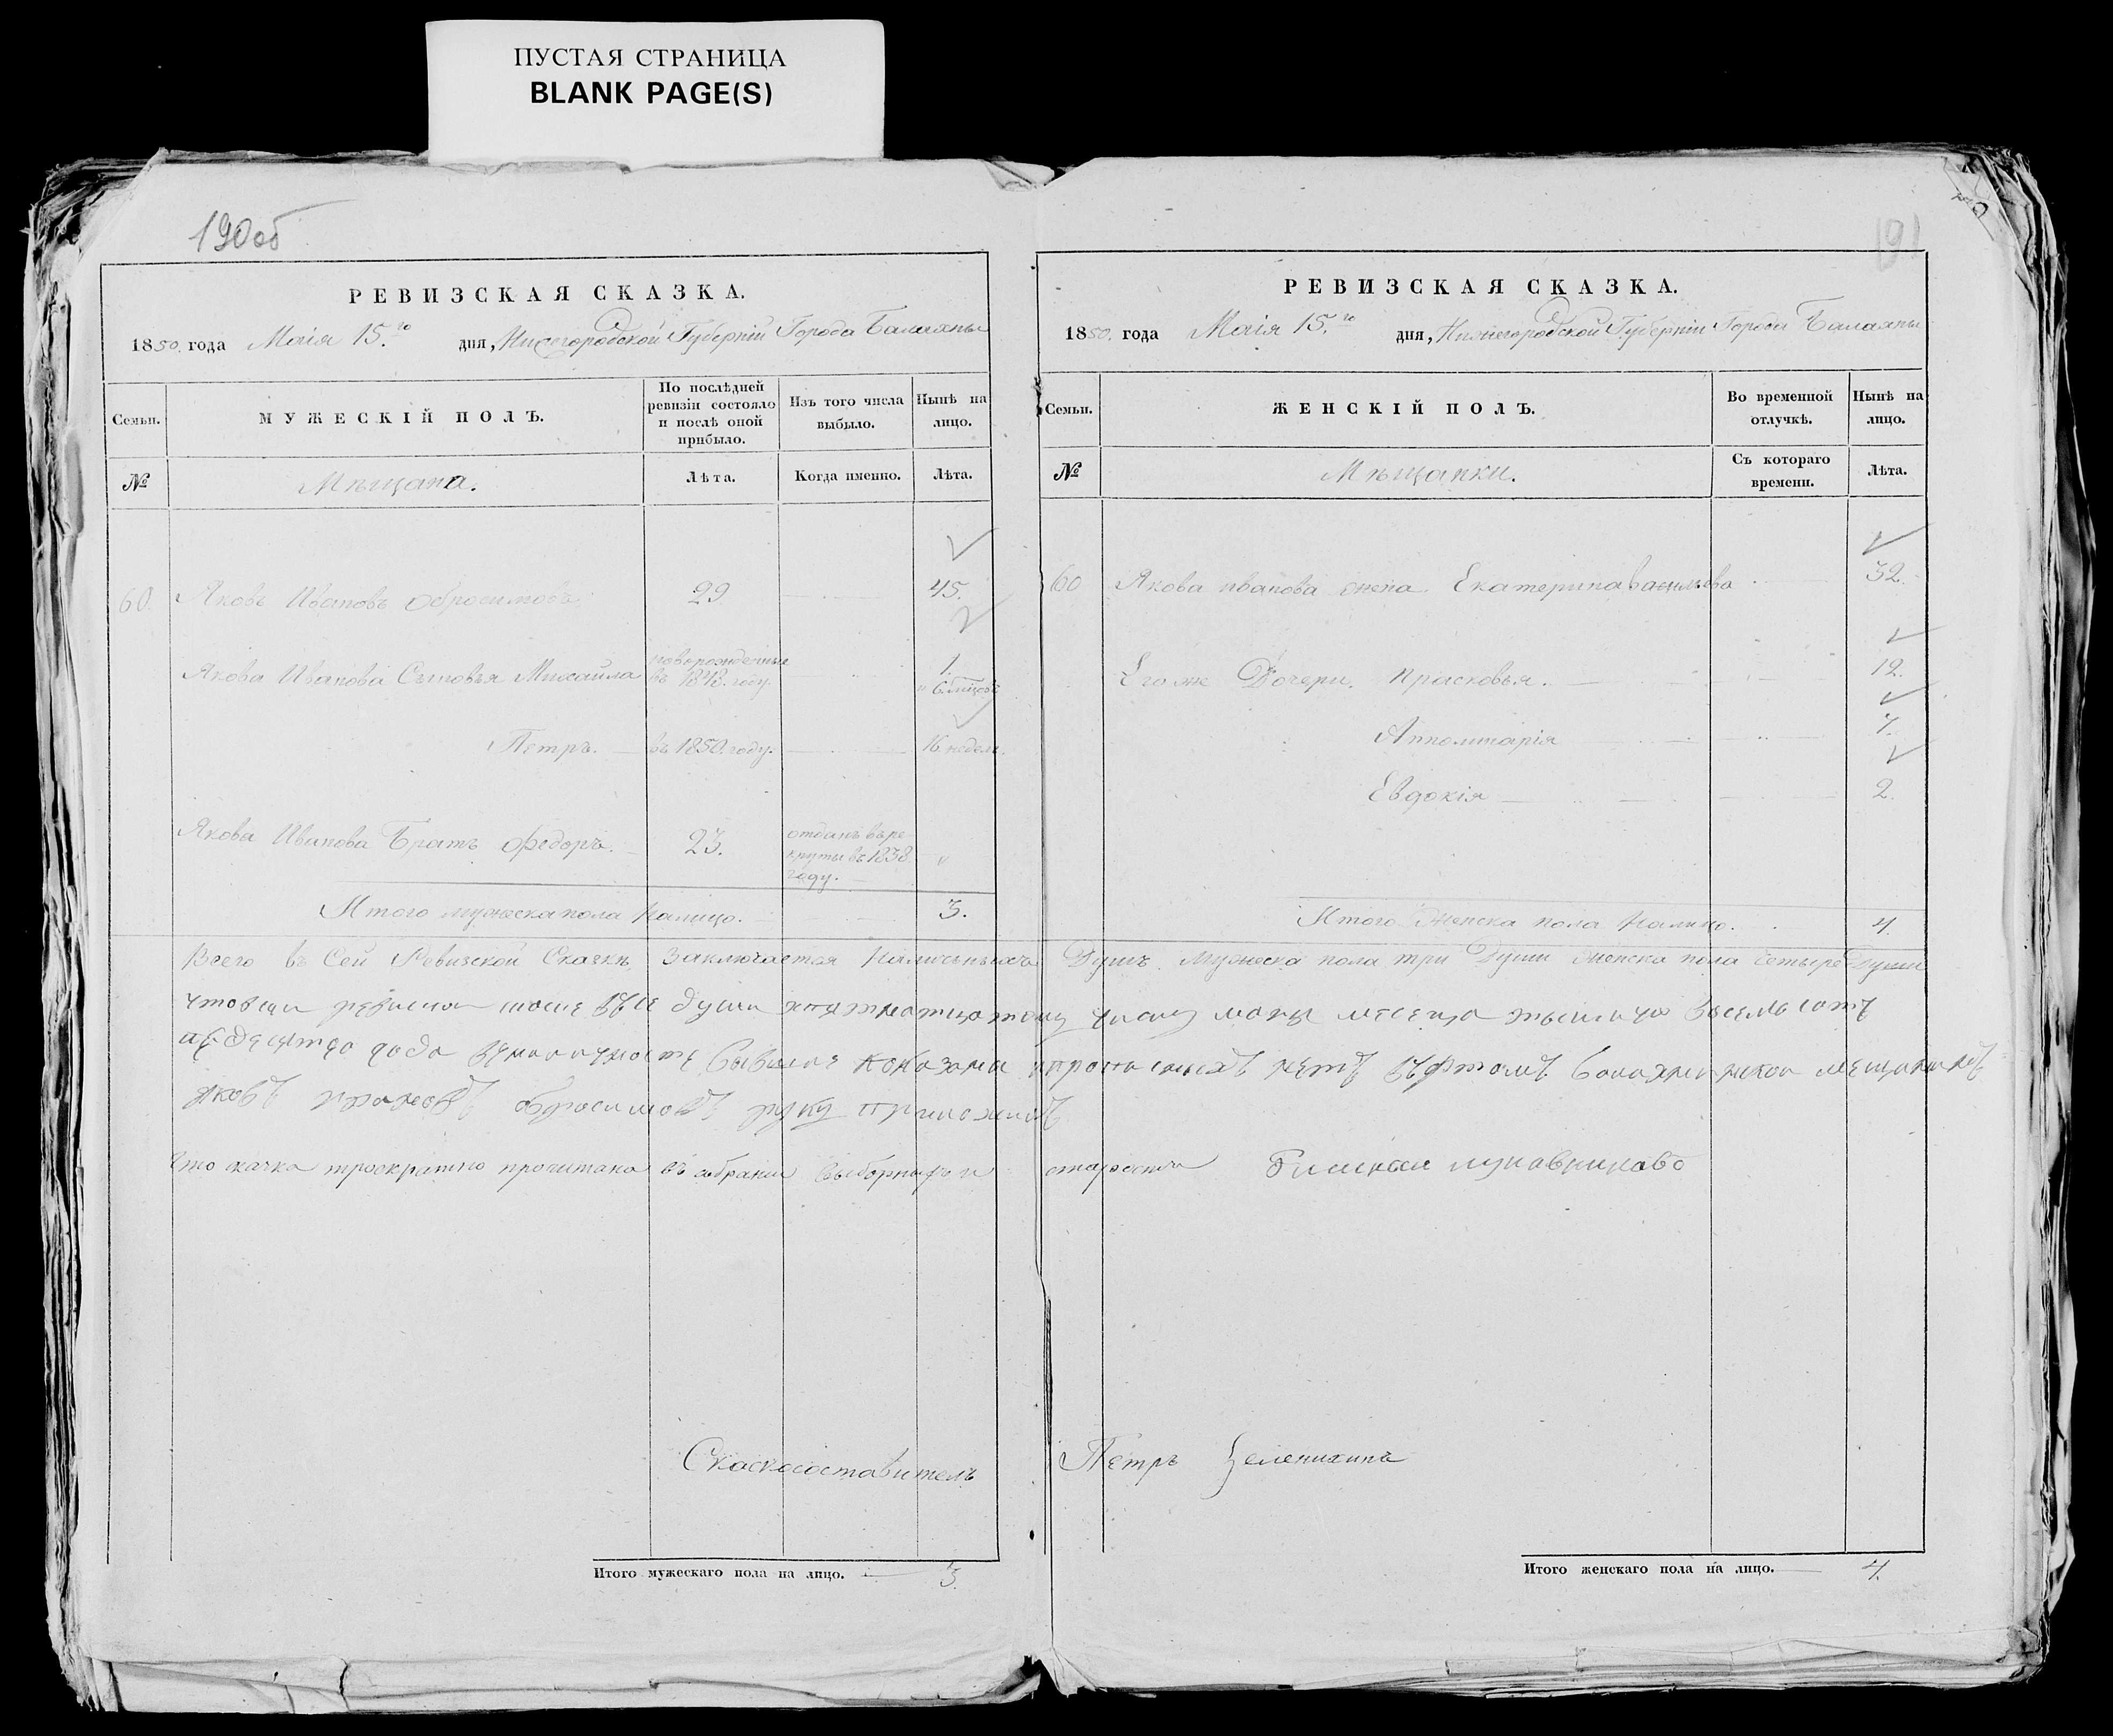 ПУСТАЯ СТРАНИЦА
BLANK PAGE(S)
190об
РЕВИЗСКАЯ СКАЗКА.
1850. года Маія 15.го дня, Нижегородской Губерніи Города Балахны
Семьи.
МУЖЕСКІЙ ПОЛЪ.
По послѣдней ревизіи состояло и послѣ оной прибыло.
Изъ того числа выбыло.
Нынѣ на лицо.
№
Мѣщана.
Лѣта.
Когда именно.
Лѣта.
60. Яковъ Ивановъ Обросимовъ 29 45.
Якова Иванова Сыновья Михайла новорожденные въ 1848. году. 1. и 6. мѣцовъ
Петръ. въ 1850. году. 16. недель.
Якова Иванова Братъ Федоръ. 23. отданъ въ ре
круты въ 1838.
году.
Итого мужеска пола налицо. 3.
191
РЕВИЗСКАЯ СКАЗКА.
1850. года Маія 15.го дня, Нижегородской Губерніи Города Балахны
Семьи.
ЖЕНСКІЙ ПОЛЪ.
Во временной отлучкѣ.
Нынѣ на лицо.
№
Мѣщанки.
Съ котораго времени.
Лѣта.
60 Якова иванова жена Екатерина васильева 32.
Его же Дочери. Прасковья. 12.
Апполинарія 7.
Евдокія 2.
Итого Женска пола налицо. 4.
Всего въ Сей Ревизской Сказкѣ Заключается Наличныхъ Душъ Мужеска пола три Души женска пола четыре Души
что всѣ души маия месеца восемьсотъ
года показаны нетъ въ томъ
яковъ ивановъ обросимовъ руку приложилъ
Что скаска троекратно прочитана въ собрании выборный и староста
Скаскосоставитель Петръ Зеленихинъ
Итого мужескаго пола на лицо. 3.
Итого женскаго пола на лицо. 4.